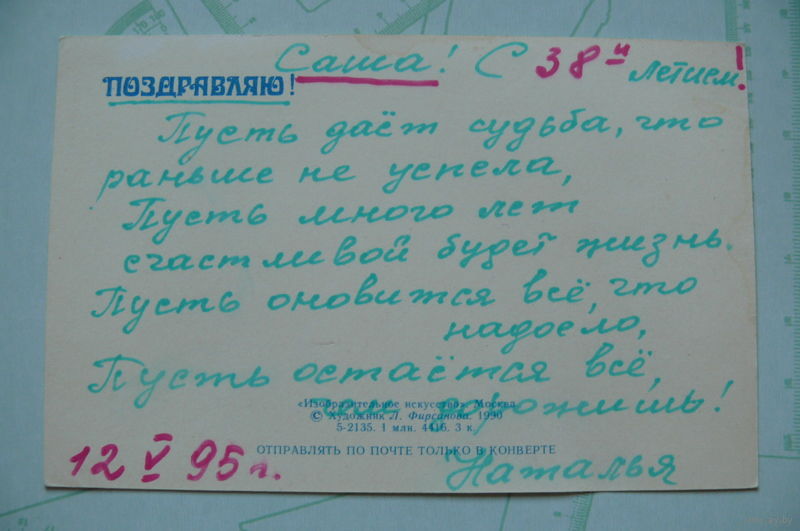 Саша! С 38и летием!
ПОЗДРАВЛЯЮ!
Пусть даёт судьба, что
раньше не успела,
Пусть много лет
счастливой будет жизнь.
Пусть оновится всё, что
надоело,
Пусть остаётся всё,
чем дорожишь!
«Изобразительное искусство». Москва
© Художник Л. Фирсанова. 1990
5-2135. 1 млн. 4416. 3 к.
ОТПРАВЛЯТЬ ПО ПОЧТЕ ТОЛЬКО В КОНВЕРТЕ
12 V 95 г.
Наталья